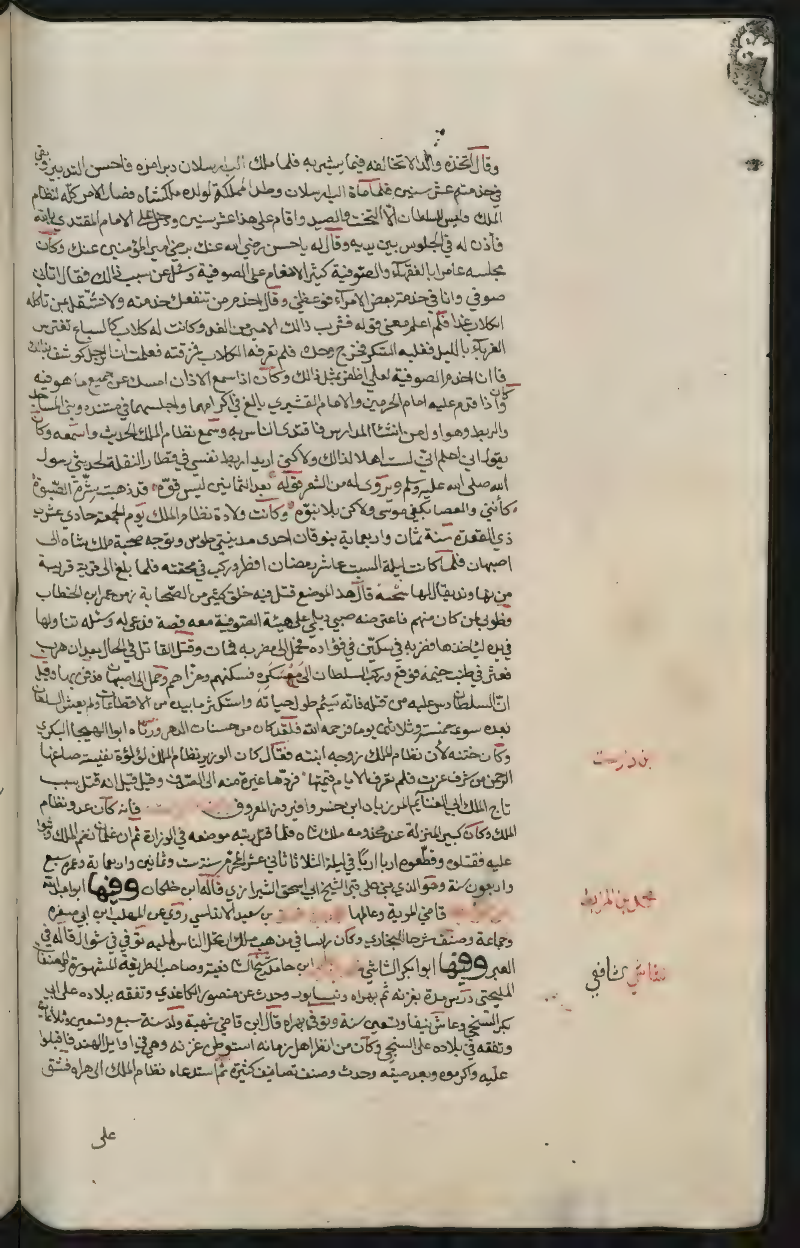 وقال اتخذه والدا لا تخالفه فيما يشير به فلما ملك الب ارسلان دبر امره فاحسن التدبير وبقي
في خدمته عشر سنين فلما مات الب ارسلان وطد المملكة لولده ملكشاه فصار الامر كله لنظام
الملك وليس للسلطان الا التخت والصيد واقام على هذا عشرين سنة ودخل على الامام المقتدي بالله
فأذن له في الجلوس بين يديه وقال له ياحسن رضي الله عنك برضى امير المؤمنين عنك وكان
مجلسه عامرا بالفقهاء والصوفية كثير الانعام على الصوفية وسئل عن سبب ذلك فقال اتاني
صوفي وانا في خدمة بعض الامراء فوعظني وقال اخدم من تنفعك خدمته ولا تشتغل بمن تاكله
الكلاب غدا فلم اعلم معنى قوله فشرب ذالك الامير من الغد وكانت له كلاب كالسباع تفترس
الغرباء بالليل فغلبه السكر فخرج وحده فلم تعرفه الكلاب فمزقته فعلمت ان الرجل كوشف بذلك
فانا اخدم الصوفية لعلي اظفر بمثل ذالك وكان اذا سمع الاذان امسك عن جميع ما هو فيه
وكان اذا قدم عليه امام الحرمين والامام القشيري بالغ في اكرامهما واجلسهما في مسنده وبنى المساجد
والربط وهو اول من انشأ المدارس فاقتدى الناس به وسمع نظام الملك الحديث واسمعه وكان
يقول اني اعلم اني لست اهلا لذالك ولاكني اريد اربط نفسي في قطار النقلة لحديث رسول
الله صلى الله عليه وسلم ويروى له من الشعر قوله بعد الثمانين ليس قوه قد ذهبت شرة الصبوة
كأنني والعصا بكفي موسى ولاكن بلا نبوه وكانت ولادة نظام الملك يوم الجمعة حادي عشر
ذي القعدة سنة ثمان واربعماية بنوقان احدى مدينتي طوس وتوجه صحبة ملك شاه الى
اصبهان فلما كانت ليلة السبت عاشر رمضان افطر وركب في محفته فلما بلغ الى قرية قريبة
من نهاوند يقال لها سحنة قال هذا الموضع قتل فيه خلق كثير من الصحابة زمن عمر ابن الخطاب
وطوبى لمن كان منهم فاعترضه صبي ديلمي على هيئة الصوفية معه قصة فدعى له وسئله تناولها
فمد يده ليأخذها فضربه في سكين في فؤاده فحمل الى مضربه فمات وقتل القاتل في الحال بعد ان هرب
فعثر في طنب خيمة فوقع وركب السلطان الى معسكره فسكنهم وعزاهم وحمل الى اصبهان ودفن بها وقيل
ان السلطان دس عليه من قتله فانه سئم طول حياته واستكثر ما بيده من الاقطاعات ولم يعش السلطان
بعده سوى خمسة وثلاثين يوما فرحمه الله فلقد كان من حسنات الدهر ورثاه ابو الهيجا البكري
وكان ختنه لأن نظام الملك زوجه ابنته فقال كان الوزير نظام الملك لؤلؤة نفيسة صاغها
الرحمن من شرف عزت فلم تعرف الايام قيمتها فردها غيرة منه الى الصدف وقيل قيل انه قتل بسبب
تاج الملك ابي الغنائم المرزبان ابن خسرو فيروز المعروف فانه كان عدو نظام
الملك وكان كبير المنزلة عند مخدومه ملك شاه فلما قتل رتبه موضعه في الوزارة ثم ان غلمان نظم الملك وثبوا
عليه فقتلوه وقطعوه اربا اربا في ليلة الثلاثا ثاني عشر المحرم سنة ست وثمانين واربعماية وعمره سبع
واربعون سنة وهو الذي بنى على قبر الشيخ ابي اسحق الشيرازي قاله ابن خلكان وفيها ابو عبد الله
قاضي المرية وعالمها بن سعيد الاندلسي روى عن المهلب ابن ابي صفره
وجماعة وصنف شرحا للبخاري وكان راسا في مذهب مالك ارتحل الناس اليه توفي في شوال قاله في
العبر وفيها ابو بكر الشاشي ابن حامد شيخ الشافعية وصاحب الطريقة المشهورة والمصنفات
المليحة درس مدة بغزنه ثم بهراة ونيسابور وحدث عن منصور الكاغدي وتفقه ببلاده على ابي
بكر السنجي وعاش نيفا وتسعين سنة وتوفي بهراة قال ابن قاضي شهبة ولد سنة سبع وتسعين وثلاثماية
وتفقه في بلاده على السنجي وكان من انظر اهل زمانه استوطن غزنه وهي في اوايل الهند فاقبلوا
عليه واكرموه وبعد صيته وحدث وصنف تصانيف كثيرة ثم استدعاه نظام الملك الى هراه فشق
على
بن دارست
محمد بن المرابط
شافعي